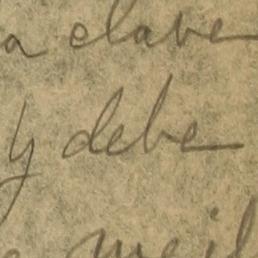 a clave
y debe